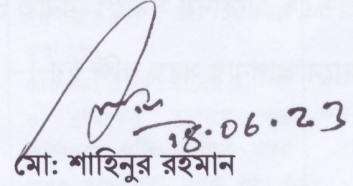 18.06.23
মো: শাহিনুর রহমান